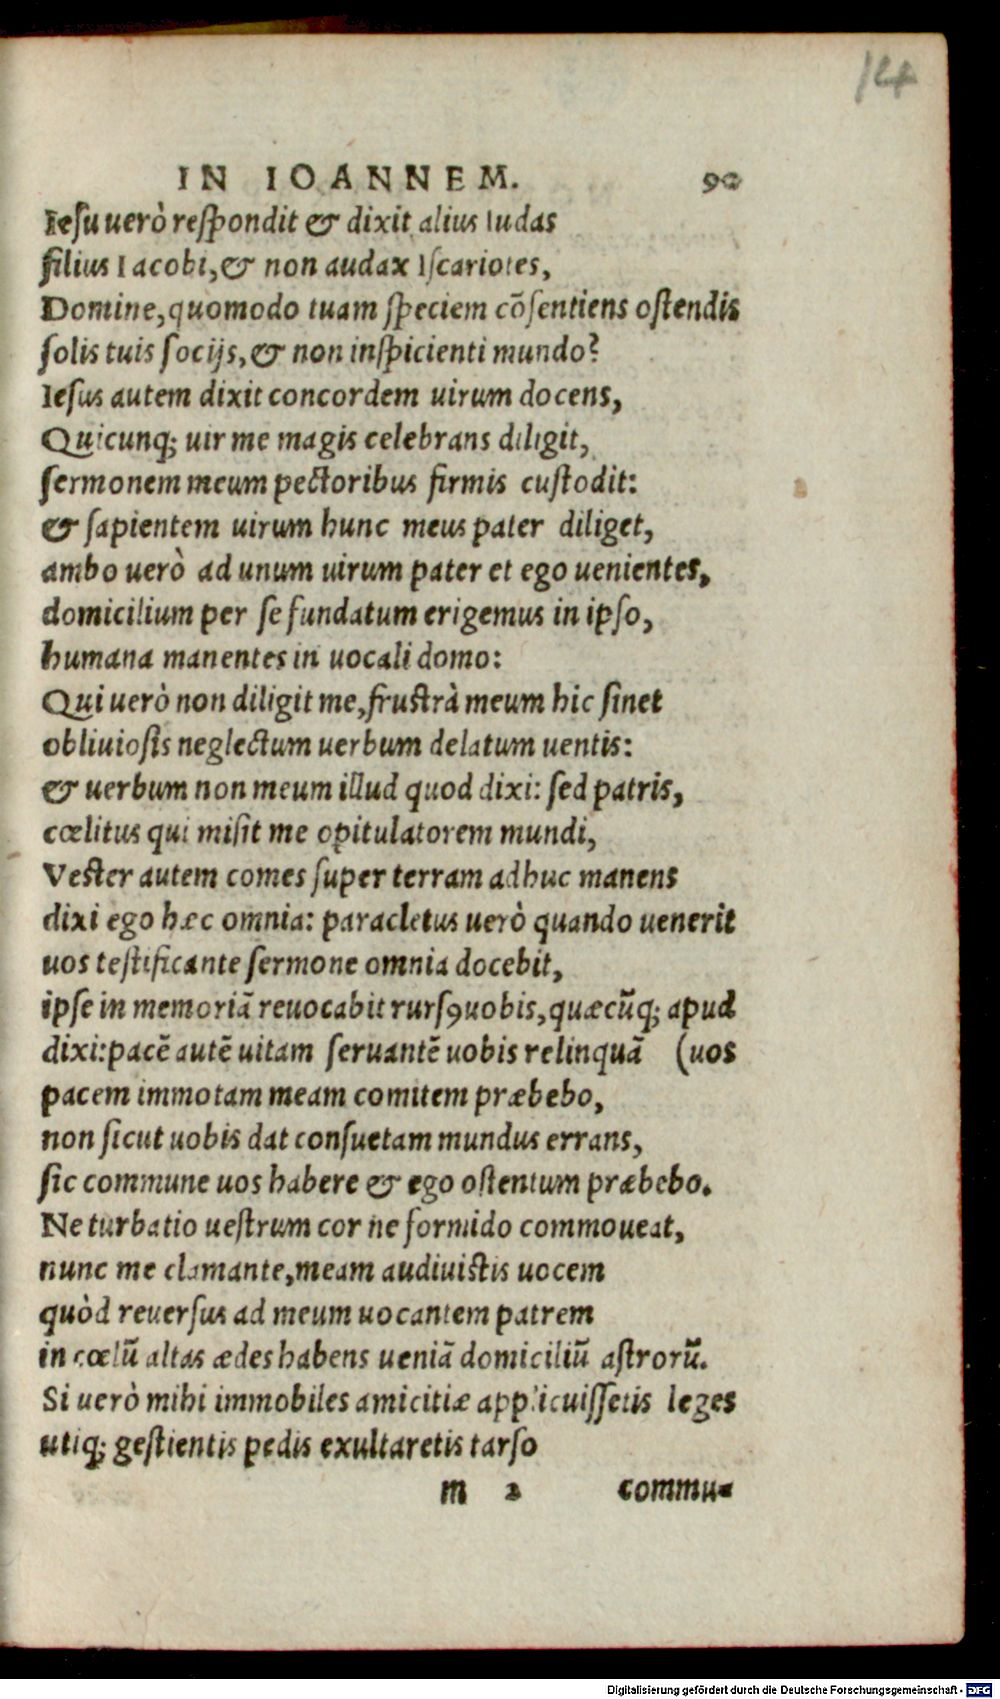 14
IN IOANNEM. 90
Iesu uerò respondit & dixit alius Iudas
filius Iacobi, & non audax Iscariotes,
Domine, quomodo tuam speciem cōsentiens ostendis
solis tuis socijs, & non inspicienti mundo?
Iesus autem dixit concordem uirum docens,
Quicunq; uir me magis celebrans diligit,
sermonem meum pectoribus firmis custodit:
& sapientem uirum hunc meus pater diliget,
ambo uerò ad unum uirum pater et ego uenientes,
domicilium per se fundatum erigemus in ipso,
humana manentes in uocali domo:
Qui uerò non diligit me, frustrà meum hic sinet
obliuiosis neglectum uerbum delatum uentis:
& uerbum non meum illud quod dixi: sed patris,
cœlitus qui misit me opitulatorem mundi,
Vester autem comes super terram adhuc manens
dixi ego hæc omnia: paracletus uerò quando uenerit
uos testificante sermone omnia docebit,
ipse in memoriā reuocabit rursꝰ uobis, quæcūq; apud
dixi: pacē autē uitam seruantē uobis relinquā (uos
pacem immotam meam comitem præbebo,
non sicut uobis dat consuetam mundus errans,
sic commune uos habere & ego ostentum præbebo.
Ne turbatio uestrum cor ne formido commoueat,
nunc me clamante, meam audiuistis uocem
quòd reuersus ad meum uocantem patrem
in cœlū altas ædes habens ueniā domiciliū astrorū.
Si uerò mihi immobiles amicitiæ applicuissetis leges
utiq; gestientis pedis exultaretis tarso
m 2 commu-
Digitalisierung gefördert durch die Deutsche Forschungsgemeinschaft - DFG